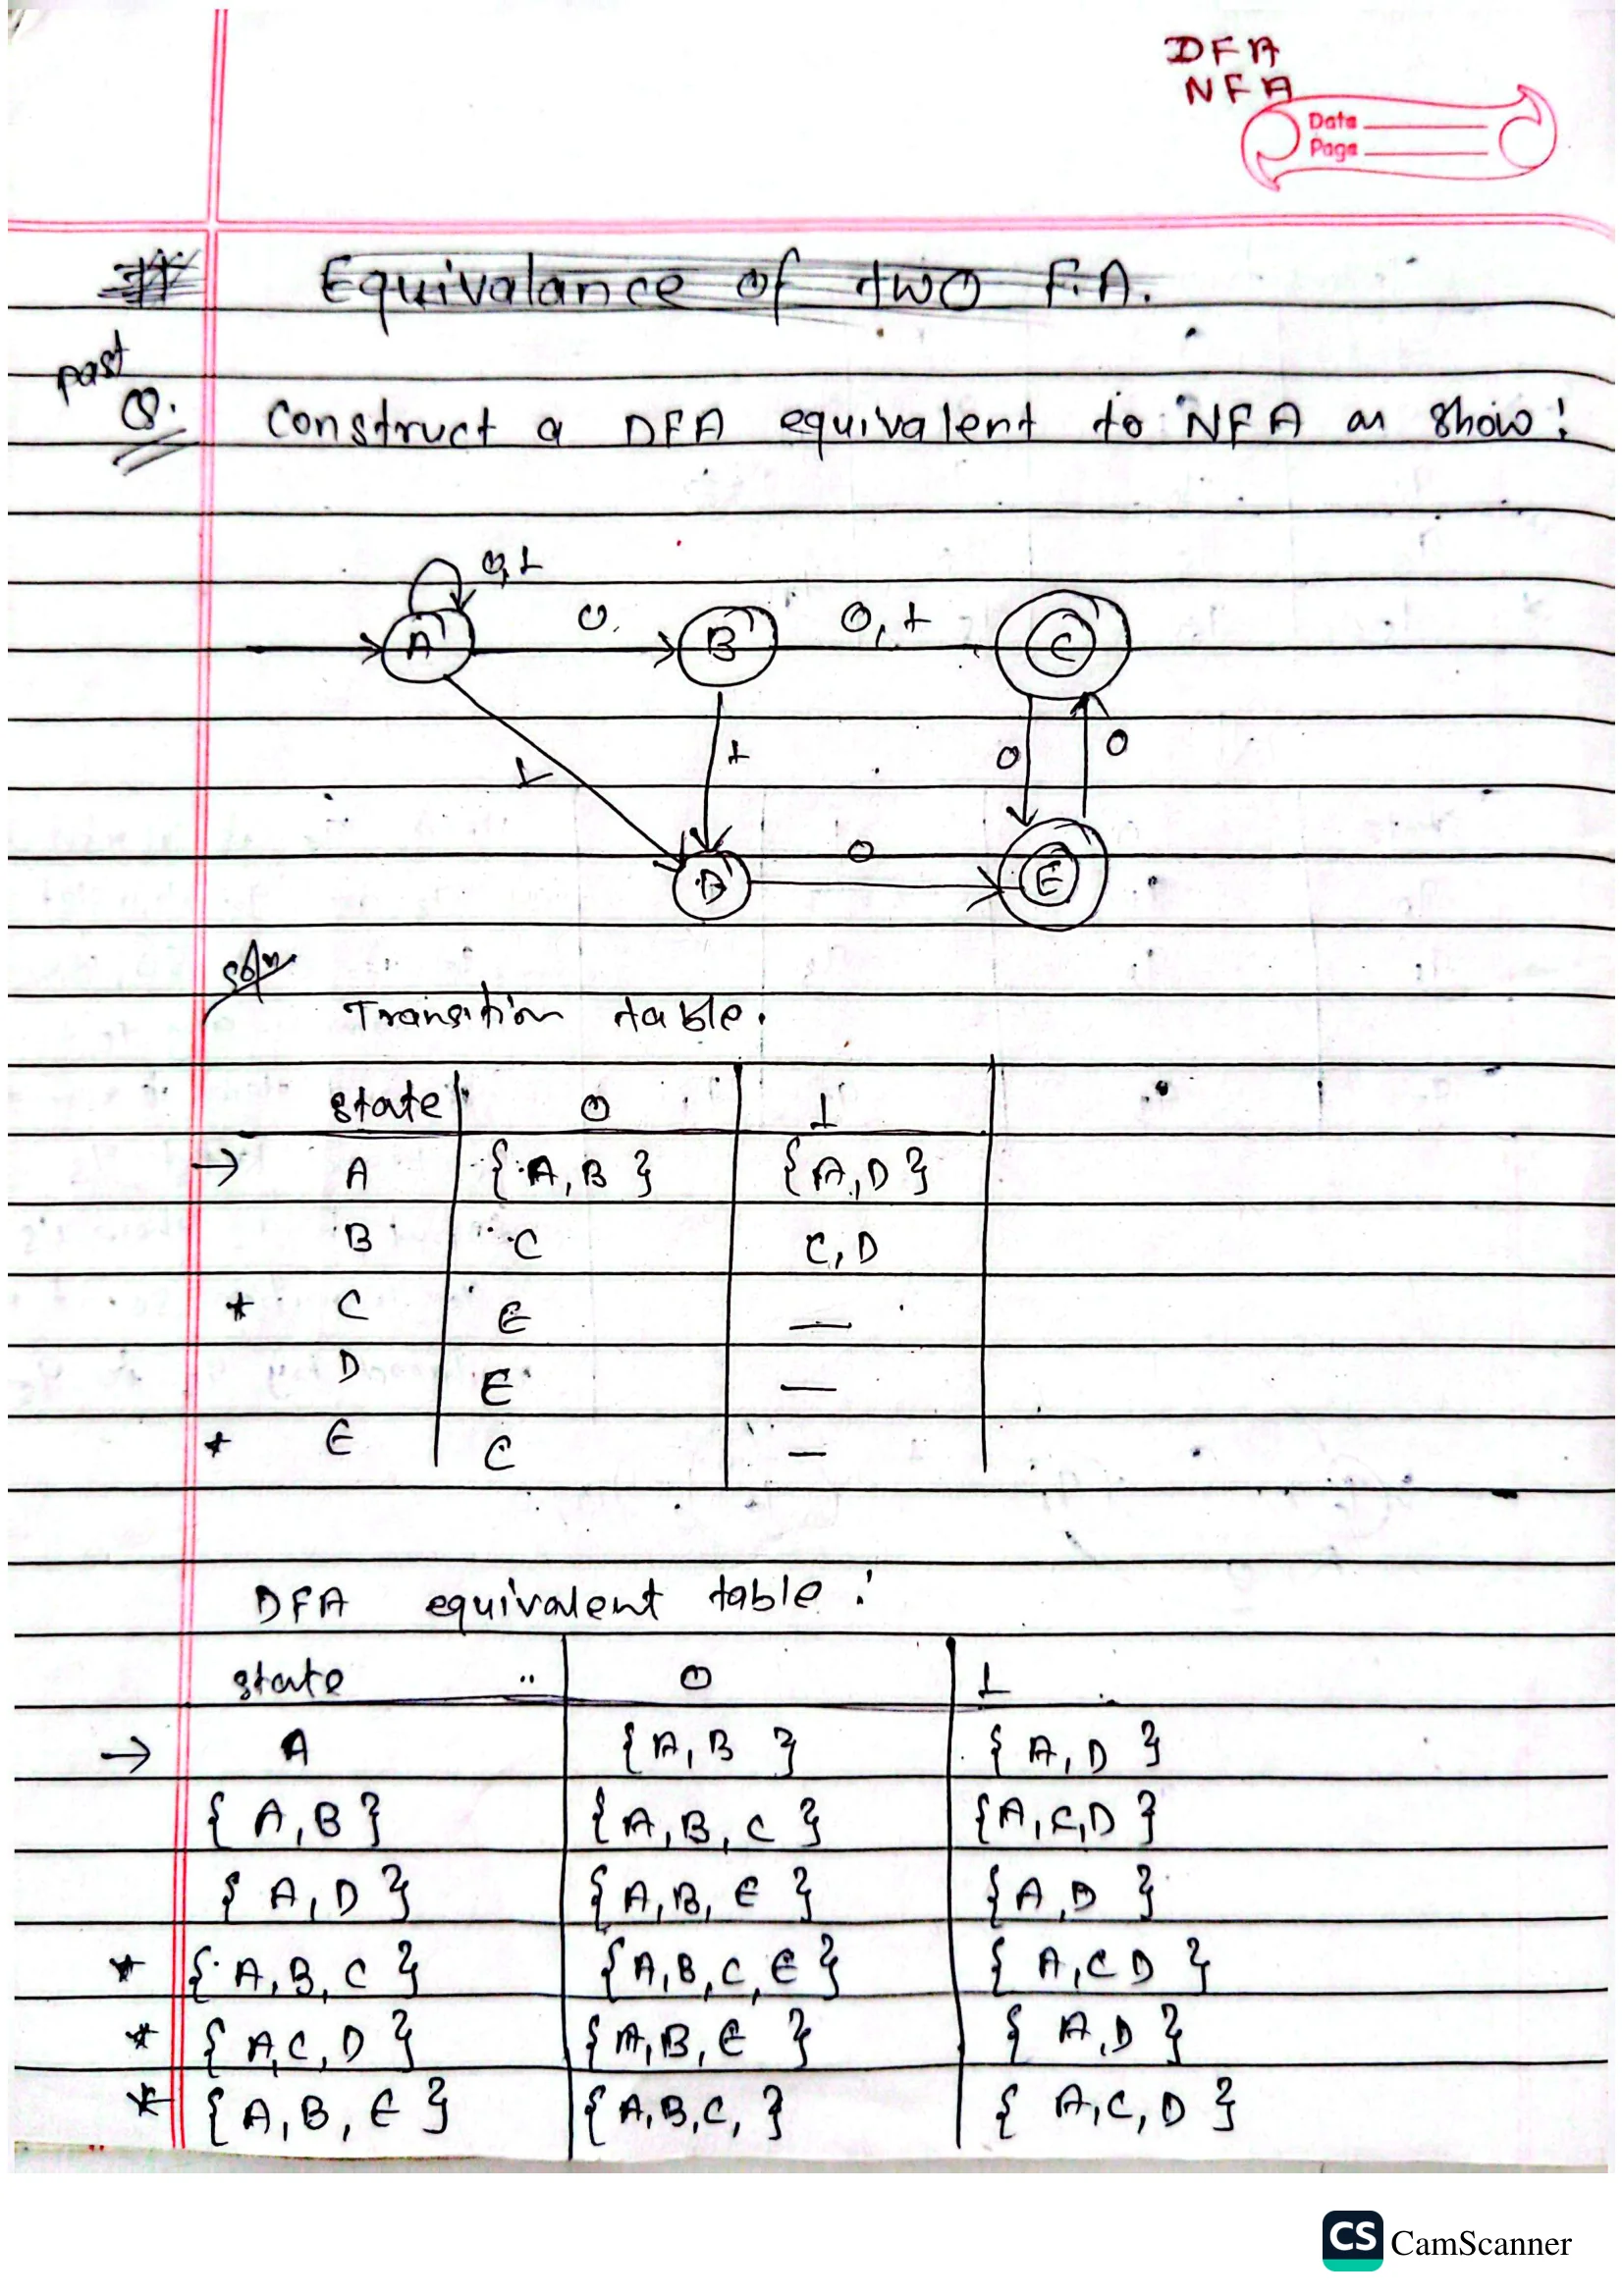 DFA
NFA
Date
Page
# Equivalance of two F.A.
past
Q. Construct a DFA equivalent to NFA as show:
0,1
A 0. B 0,1 C
1 1 0 0
D 0 E
soln
Transition table.
state 0 1
→ A {A,B} {A,D}
B C C,D
* C E —
D E —
* E C —
DFA equivalent table:
state 0 1
→ A {A,B} {A,D}
{A,B} {A,B,C} {A,C,D}
{A,D} {A,B,E} {A,D}
* {A,B,C} {A,B,C,E} {A,C D}
* {A,C,D} {A,B,E} {A,D}
* {A,B,E} {A,B,C,} {A,C,D}
CS CamScanner